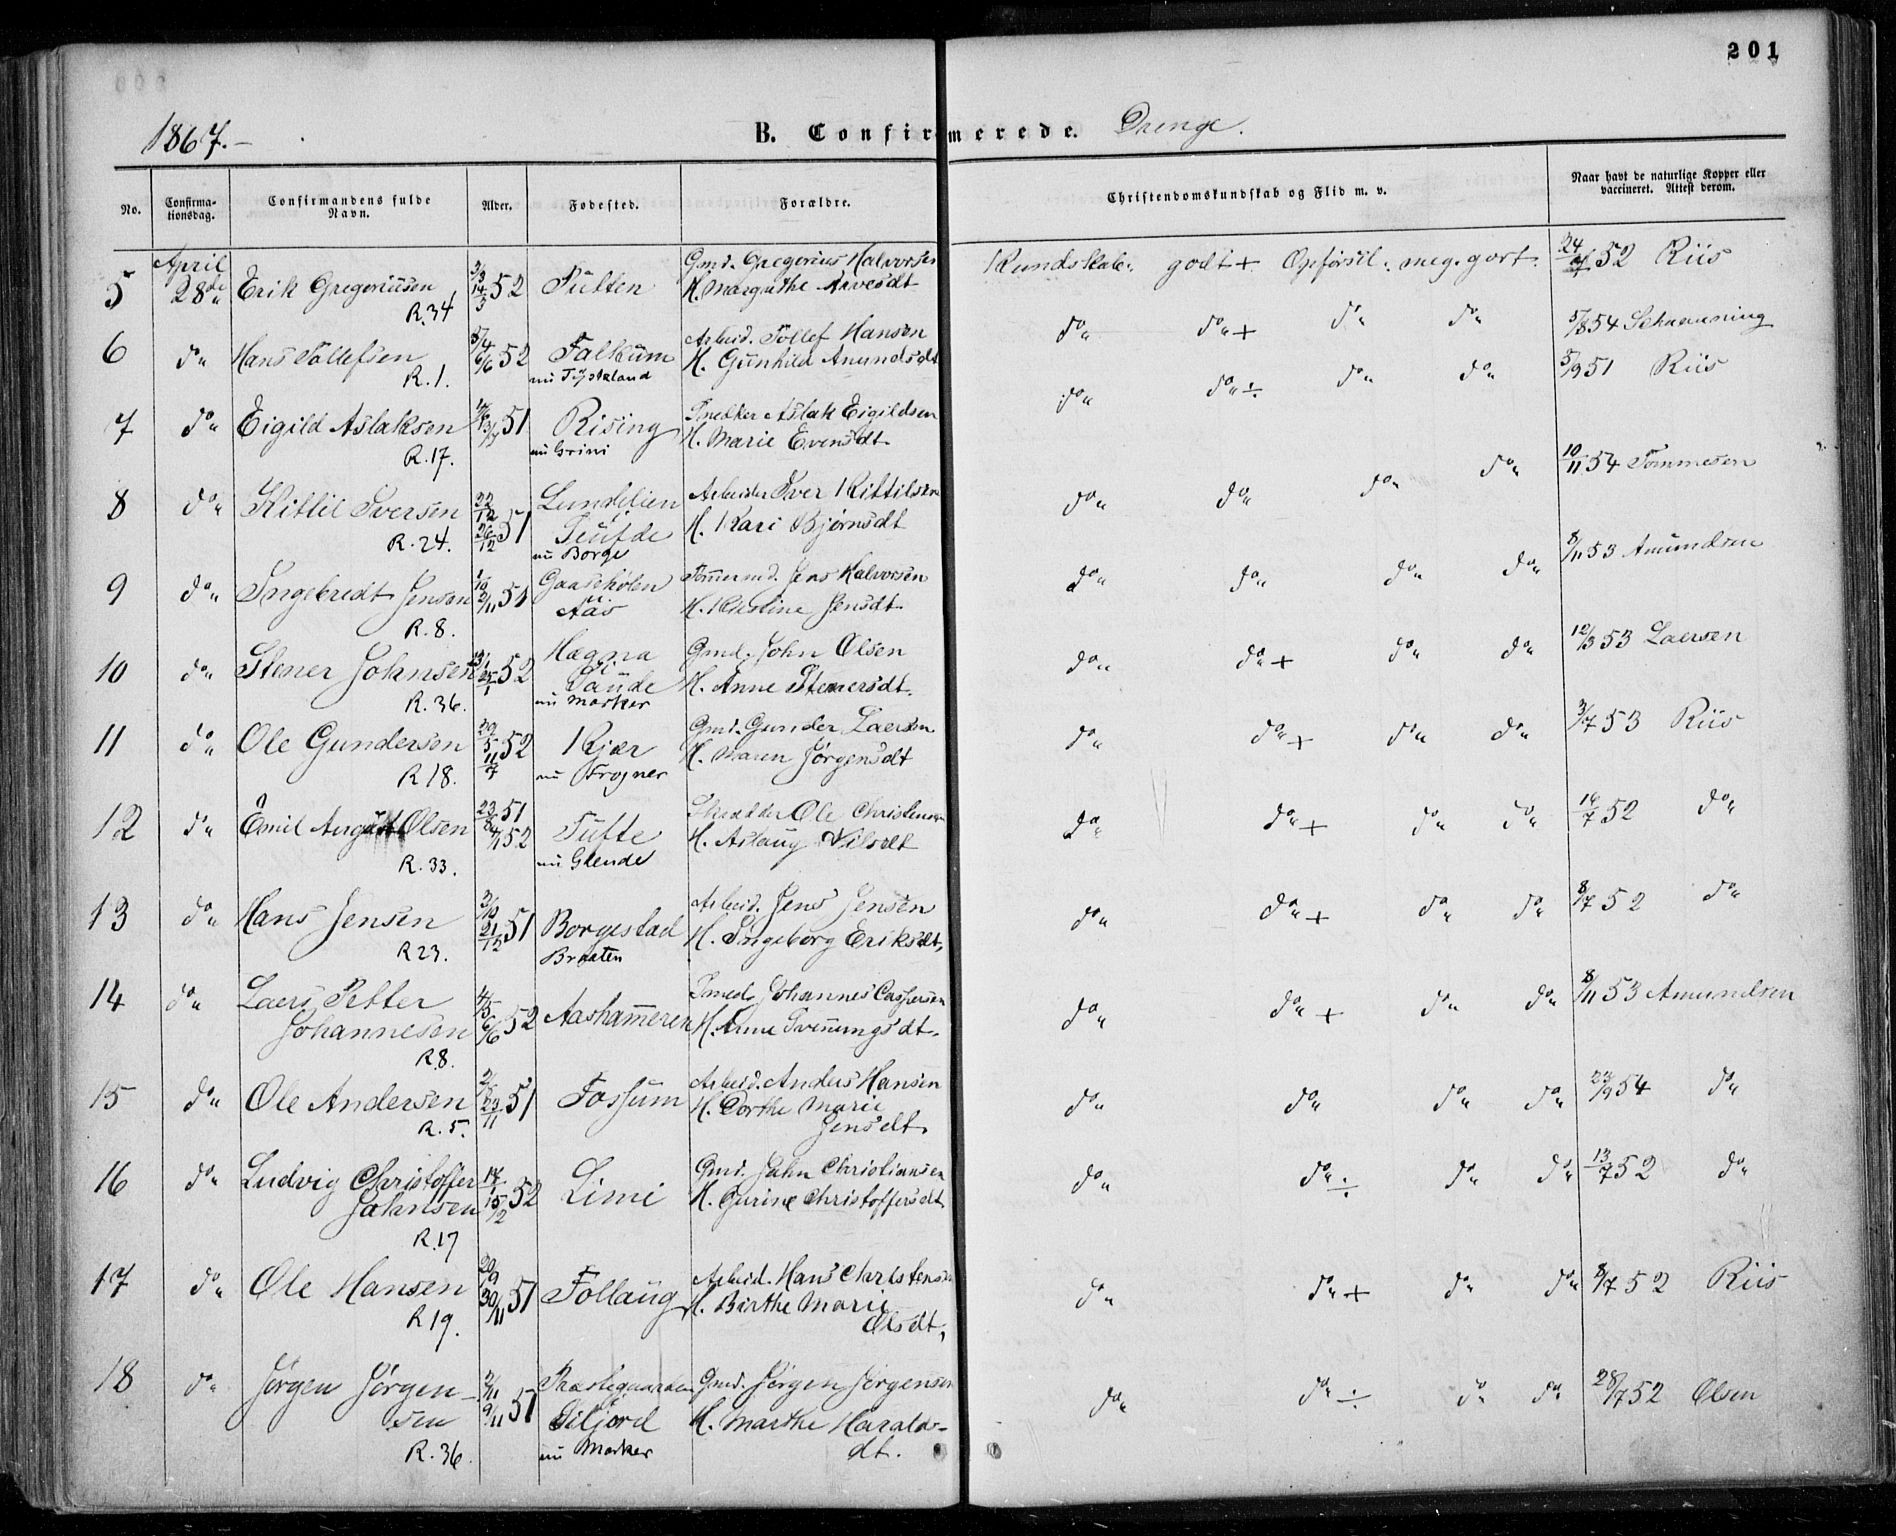 201
1867.-
B. Confirmerede. Drenge.
No. Confirma-tionsdag. Confirmandens fulde Navn. Alder. Fodested. Forældre. Christendomskundskab og Flid m. v. Naar havt de naturlige Kopper eller vaccineret. Attest derom.
April
5 28de Erik Gregoriusen 52 Tuften Gmd. Gregorius Halvorsen Kundskab: godt + Opførsel: meg. godt. 52 Riis
R.34 H. Margrethe Arvesdt
6 do Hans Tollefsen 6/6 52 Falkum Arbeid. Tollef Hansen do do + do do 5/8 54 Schanning
R.1. H. Gunhild Amundsdt
7 do Eigild Aslaksen 51 Rising Snedker Aslak Eigildsen do do ÷ do do 5/9 51 Riis
R.17. nu Grini H. Marie Evensdt
8 do Kittil Iversen 22/12 26/12 51 Lundelien i Arbeider Iver Kittilsen do do do do 10/11 54 Tommesen
R.24. nu Borge H. Kari Bjørnsdt
9 do Ingebredt Jensen 51 Gaaseholen Tømmermd. Jens Halvorsen do do do do 8/11 53 Amundsen
R.8. H. Kirstine Jensdt
10 do Stener Johnsen 52 Hægna i Gmd. John Olsen do do + do do 12/3 53 Laersen
R.36. Saude nu Marker H. Anne Stenersdt.
11 do Ole Gundersen 29/5 11/7 52 Kjær Gmd. Gunder Laersen do do + do do 3/7 53 Riis
R18. nu Frogner H. Maren Jørgensdt
12 do Emil August Olsen 23/8 51 52 Tufte Skrædder Ole Christensen do do + do do 16/7 52 do
R.33. nu Glende H. Aslaug Nilsdt
13 do Hans Jensen 3/10 21/12 51 Borgestad Arbeid. Jens Jensen do do + do do 8/7 52 do
R23. Braaten H. Ingeborg Eriksdt.
14 do Laers Petter 4/5 6/6 52 Aashammeren Smed Johannes Caspersen do do + do do 8/11 53 Amundsen
Johannesen H. Anne Svenungsdt.
R8.
15 do Ole Andersen 23/11 51 Fossum Arbeid. Anders Hansen do do do do 54 do
R.5. H. Dorthe Marie
Jensdt.
16 do Ludvig Christoffer 15/2 52 Limi Gmd. John Christiansen do do ÷ do do 13/7 52 do
Johnsen H. Gurine Christoffersdt
R.17
17 do Ole Hansen 20/9 30/11 51 Follaug Arbeid. Hans Christensen do do + do do 8/7 52 Riis
R19. H. Birthe Marie
Olsdt.
18 do Jørgen Jørgen- 9/11 51 Præstegaarden Gmd. Jørgen Jørgensen do do ÷ do do 28/7 52 Olsen
sen i Siljord H. Marthe Haralds-
R.36. nu Marker dt.